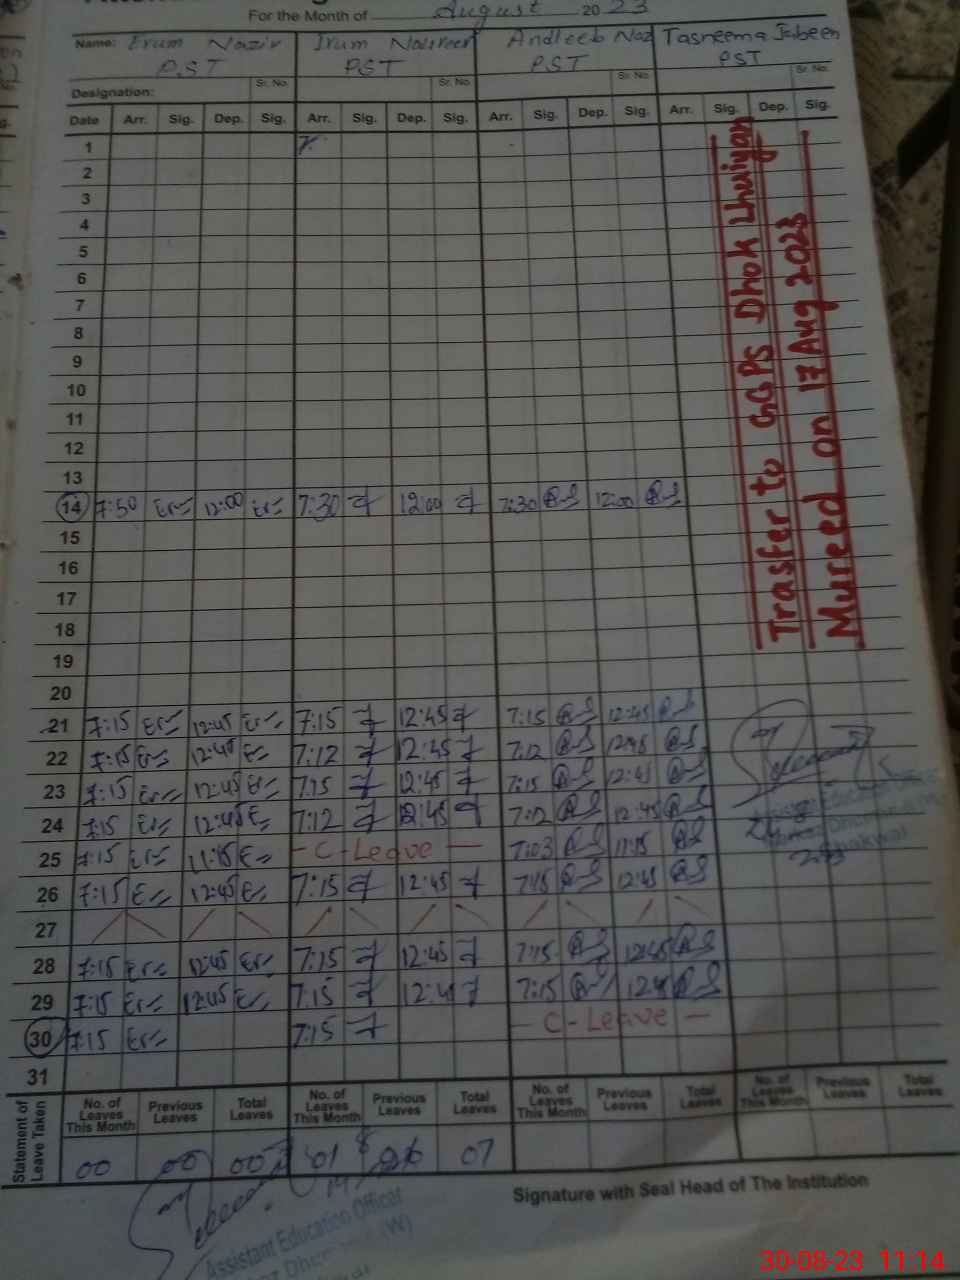 For the Month of August 2023
Name: Erum Nazir Irum Nasreen Andleeb Naz Tasneema Jabeen
PST PST PST PST
Sr. No. Sr. No. Sr. No. Sr. No.
Designation:
Date Arr. Sig. Dep. Sig. Arr. Sig. Dep. Sig. Arr. Sig. Dep. Sig. Arr. Sig. Dep. Sig.
1
2
3
4
5
6
7
8
9
10
11
12
13
14 7:50 12:00 7:30 12:00 7:30 12:00
15
16
17
18
19
20
21 7:15 12:45 7:15 12:45 7:15 12:45
22 7:15 12:45 7:12 12:45 7:12 12:45
23 7:15 12:45 7:15 12:45 7:15 12:45
24 7:15 12:45 7:12 12:45 7:12 12:45
25 7:15 11:15 - C-Leave - 7:03 11:15
26 7:15 12:45 7:15 12:45 7:15 12:45
27
28 7:15 12:45 7:15 12:45 7:15 12:45
29 7:15 12:45 7:15 12:4 7:15 12:4
- C-Leave -
30 7:15 7:15
31
Trasfer to GGPS Dhok Lhuiyan
Mureed on 17 Aug 2023
Assistant Education Officer
Statement of Leave Taken
No. of Leaves This Month Previous Leaves Total Leaves No. of Leaves This Month Previous Leaves Total Leaves No. of Leaves This Month Previous Leaves Total Leaves No. of Leaves This Month Previous Leaves Total Leaves
00 00 00 01 06 07
Signature with Seal Head of The Institution
Assistant Education Officer
(W)
30-08-23 11:14